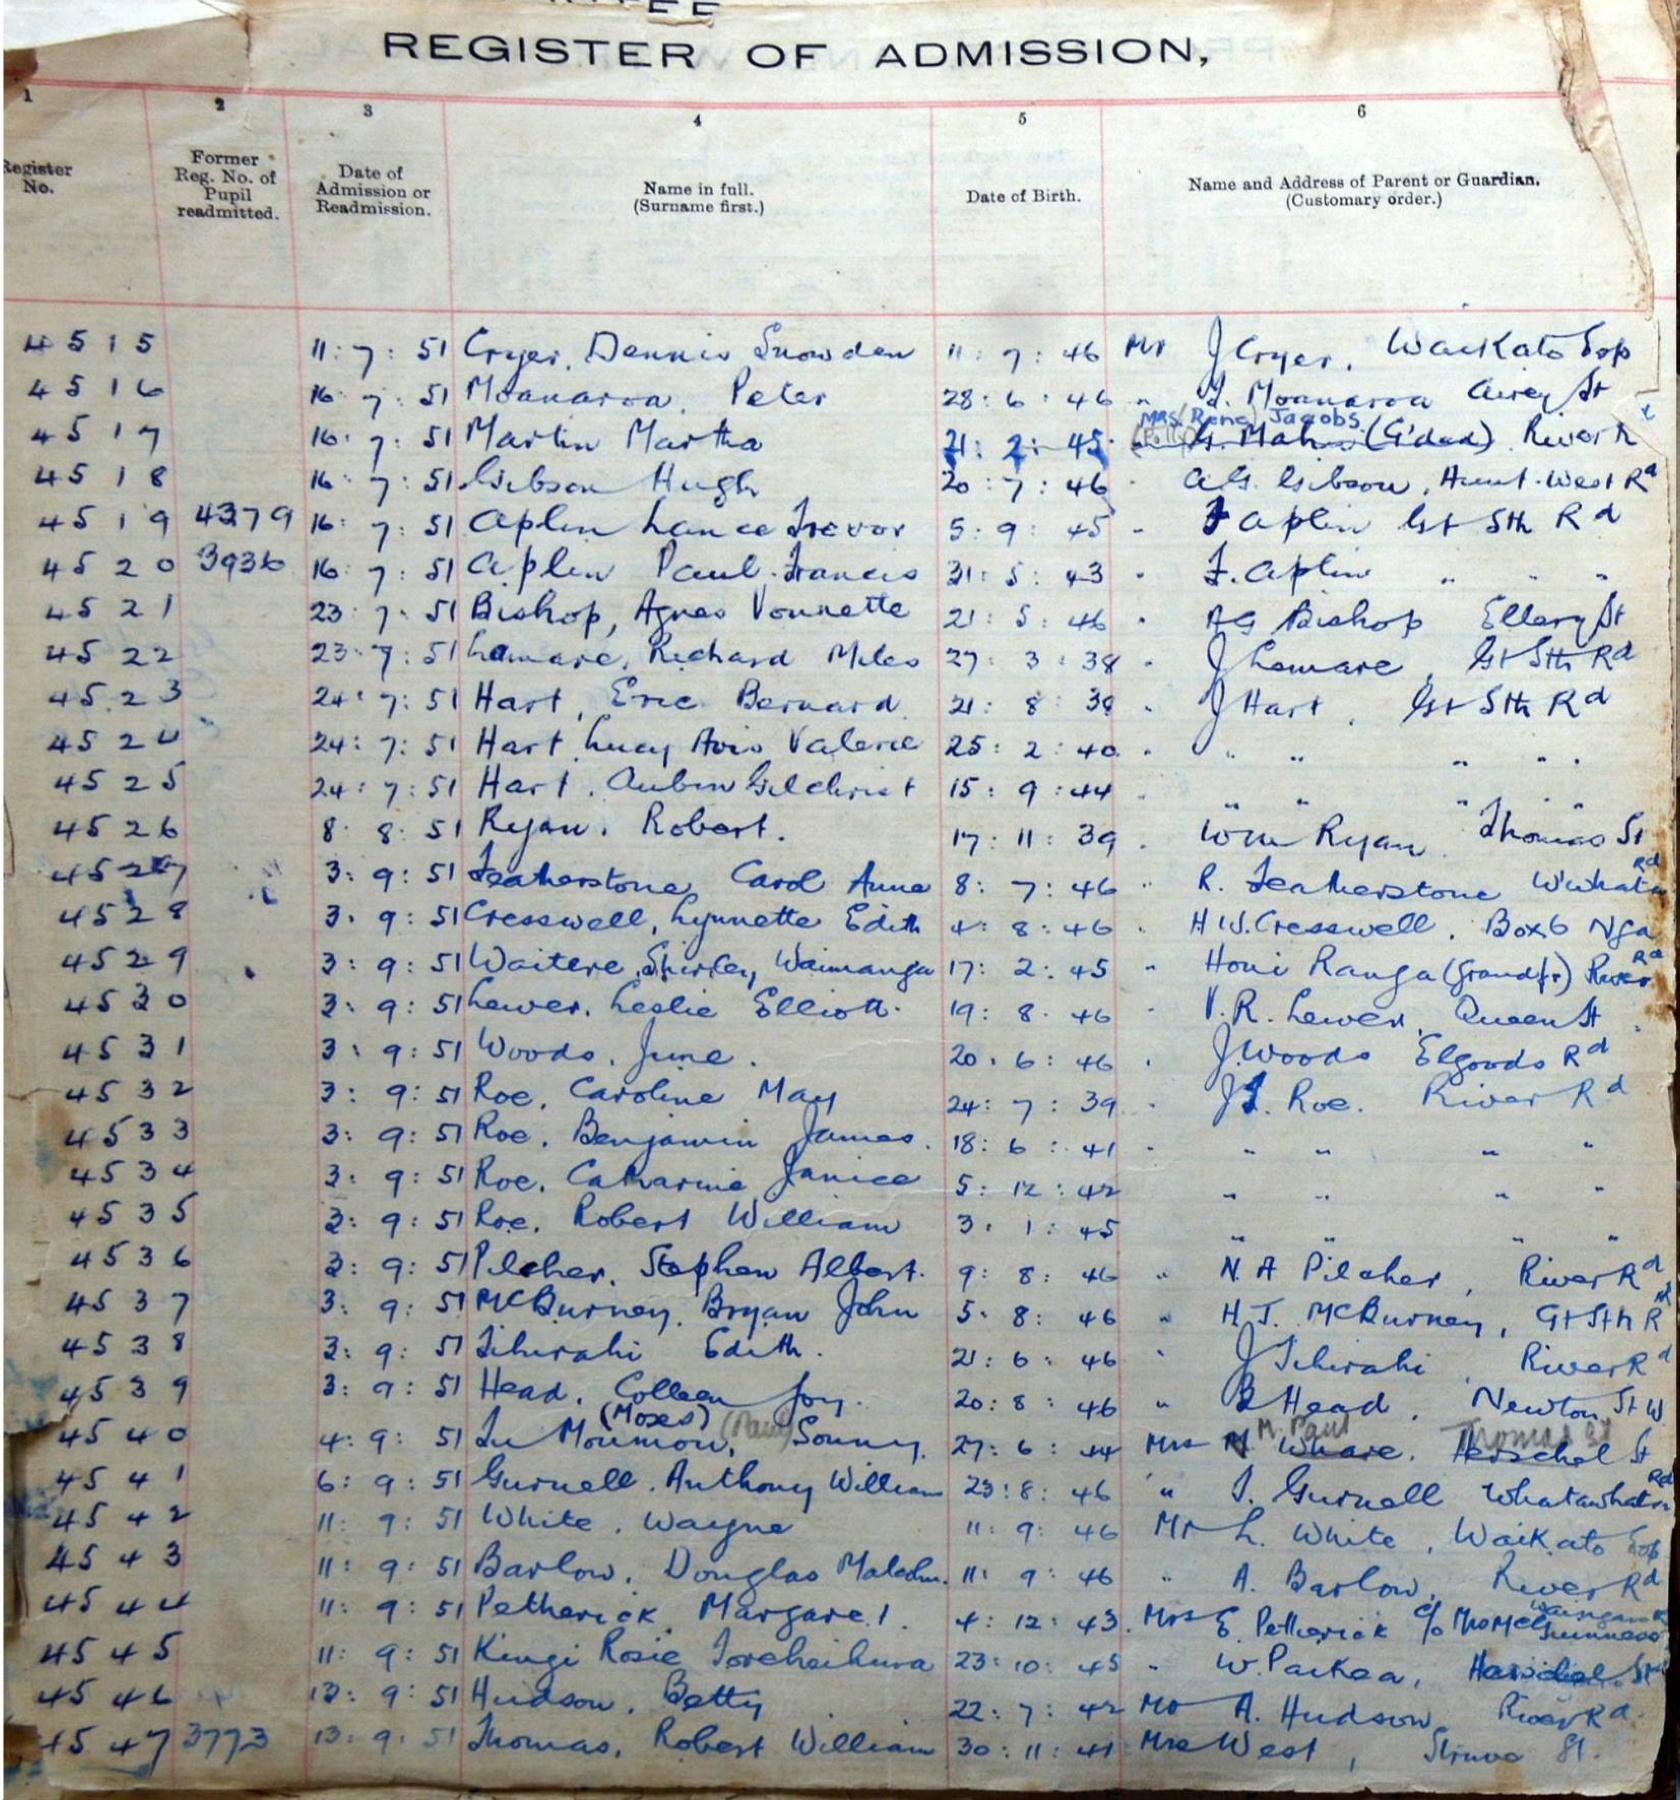 REGISTER OF ADMISSION,
1 2 3 4 5 6
Register No. Former Reg. No. of Pupil readmitted. Date of Admission or Readmission. Name in full. (Surname first.) Date of Birth. Name and Address of Parent or Guardian. (Customary order.)
4515 11:7:51 Cryer, Dennis Snowden 11:7:46 Mr J Cryer, Waikato Esp
4516 16:7:51 Moanaroa, Peter 28:6:46 " Moanaroa Airey St
MRS Rene Jacobs
4517 16:7:51 Martin Martha 21:2:45 (G'dad) River R
4518 16:7:51 Gibson Hugh 20:7:46 " A.G. Gibson, Hunt. West Rd
4519 4379 16:7:51 Aplin Lance Trevor 5:9:45 " F Aplin Gt Sth Rd
4520 3936 16:7:51 Aplin Paul Francis 31:5:43 " F. Aplin " " "
4521 23:7:51 Bishop, Agnes Vonnette 21:5:46 " AG Bishop Ellery St
4522 23:7:51 Lemare, Richard Miles 27:3:38 " J Lemare, Gt Sth Rd
4523 24:7:51 Hart, Eric Bernard 21:8:38 " J Hart, Gt Sth Rd
4524 24:7:51 Hart Lucy Avis Valerie 25:2:40 " " " " " "
4525 24:7:51 Hart, Aubin Gilchrist 15:9:44 " " " " " "
4526 8:8:51 Ryan, Robert. 17:11:39 " Wm Ryan Thomas St
4527 3:9:51 Featherstone, Carol Anne 8:7:46 " R. Featherstone W'whata Rd
4528 3:9:51 Cresswell, Lynnette Edith 4:8:46 " H W. Cresswell, Box 6 Nga
4529 3:9:51 Waitere, Shirley, Waimanga 17:2:45 " Honi Ranga (Grandfr) River Rd
4530 3:9:51 Lewer, Leslie Elliott. 19:8:46 " V.R. Lewer, Queen St
4531 3:9:51 Woods, June. 20:6:46 " J. Woods Elgoods Rd
4532 3:9:51 Roe, Caroline May 24:7:39 " J.F. Roe. River Rd
4533 3:9:51 Roe, Benjamin James. 18:6:41 " " " " "
4534 3:9:51 Roe, Catharine Janice 5:12:42 " " " "
4535 3:9:51 Roe, Robert William 3:1:45 " " " "
4536 3:9:51 Pilcher, Stephen Albert. 9:8:46 " N. A Pilcher, River Rd
4537 3:9:51 McBurney, Bryan John 5:8:46 " H.J. McBurney, Gt Sth Rd
4538 3:9:51 Tihirahi Edith. 21:6:46 " J Tihirahi, River Rd
4539 3:9:51 Head, Colleen Joy. 20:8:46 " B Head, Newton St W
(Moses) (Paul) M. Paul Thomas St
4540 4:9:51 Tu Moumou, Sonny. 27:6:44 Mrs Whare, Herschel St
4541 6:9:51 Gurnell, Anthony William 23:8:46 " J. Gurnell Whatawhata Rd
4542 11:9:51 White, Wayne 11:9:46 Mr L. White, Waikato Esp
4543 11:9:51 Barlow, Douglas Malcolm. 11:9:46 " A. Barlow, River Rd
4544 11:9:51 Petherick, Margaret. 4:12:43 Mrs E. Petherick c/o Mrs McGuinness
4545 11:9:51 Kingi Rosie 23:10:45 " W. Paikea, Herschel St
4546 12:9:51 Hudson, Betty 22:7:42 Mr A. Hudson River Rd.
4547 3773 13:9:51 Thomas, Robert William 30:11:41 Mrs West, St.